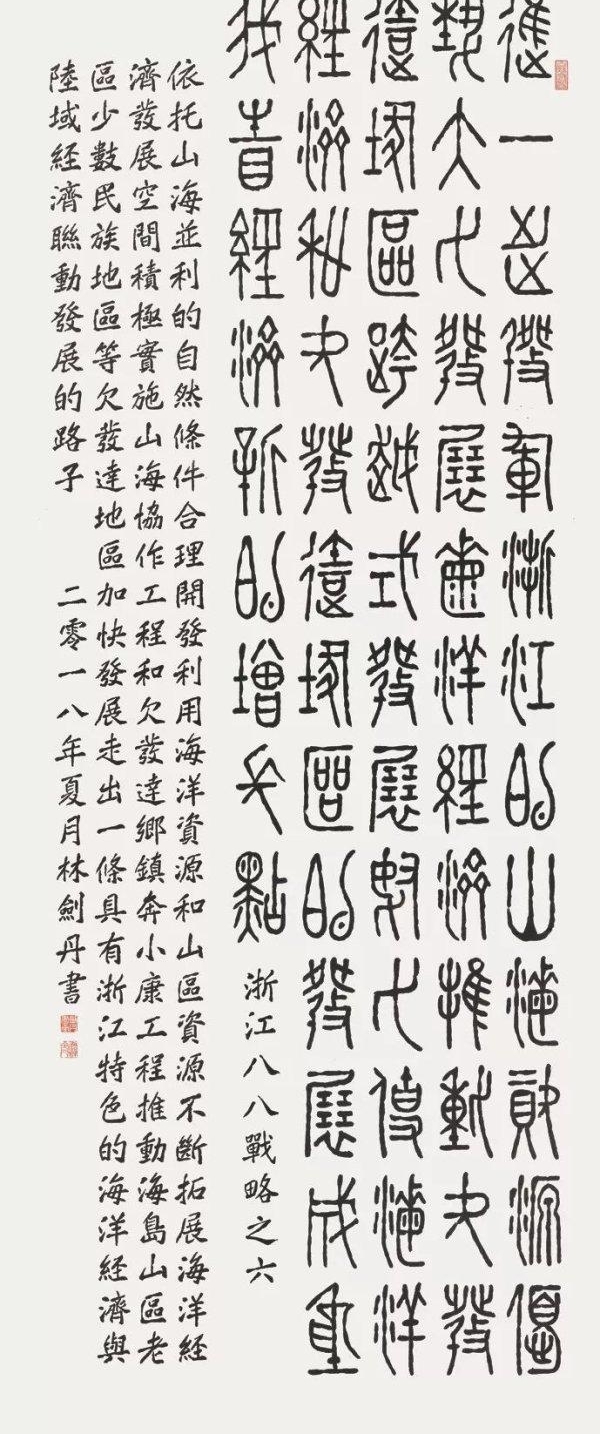 進一步發揮浙江的山海資源優
勢大力發展海洋經濟推動欠發
達地區跨越式發展努力使海洋
經濟和欠發達地區的發展成為
我省經濟新的增長點
浙江八八戰略之六
依托山海並利的自然條件合理開發利用海洋資源和山區資源不斷拓展海洋經
濟發展空間積極實施山海協作工程和欠發達鄉鎮奔小康工程推動海島山區老
區少數民族地區等欠發達地區加快發展走出一條具有浙江特色的海洋經濟與
陸域經濟聯動發展的路子 二零一八年夏月林劍丹書